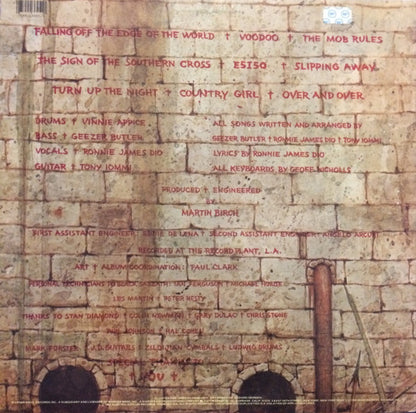 FALLING OFF THE EDGE OF THE WORLD † VOODOO †. THE MOB RULES
THE SIGN OF THE SOUTHERN CROSS † E5150 † SLIPPING AWAY
TURN UP THE NIGHT † COUNTRY GIRL † OVER AND OVER
DRUMS † VINNIE APPICE
BASS † GEEZER BUTLER
VOCALS † RONNIE JAMES DIO
GUITAR † TONY IOMMI
ALL SONGS WRITTEN AND ARRANGED BY
GEEZER BUTLER † RONNIE JAMES DIO † TONY IOMMI
LYRICS BY RONNIE JAMES DIO
ALL KEYBOARDS BY GEOFF NICHOLLS
PRODUCED † ENGINEERED
BY
MARTIN BIRCH
FIRST ASSISTANT ENGINEER EDDIE DE LENA † SECOND ASSISTANT ENGINEER ANGELO ARCURI
RECORDED AT THE RECORD PLANT, L.A.
ART † ALBUM COORDINATION: PAUL CLARK
PERSONAL TECHNICIANS TO BLACK SABBATH: IAN FERGUSON † MICHAEL HOWSE
LES MARTIN † PETER RESTY
THANKS TO STAN DIAMOND † COLIN NEWMAN † GARY DULAO † CHRIS STONE
PAUL JOHNSON † HAL COHEN
MARK FORSTER J.D. GUITARS ZILDJIAN CYMBALS † LUDWIG DRUMS
SPECIAL THANKS TO
† YOU †